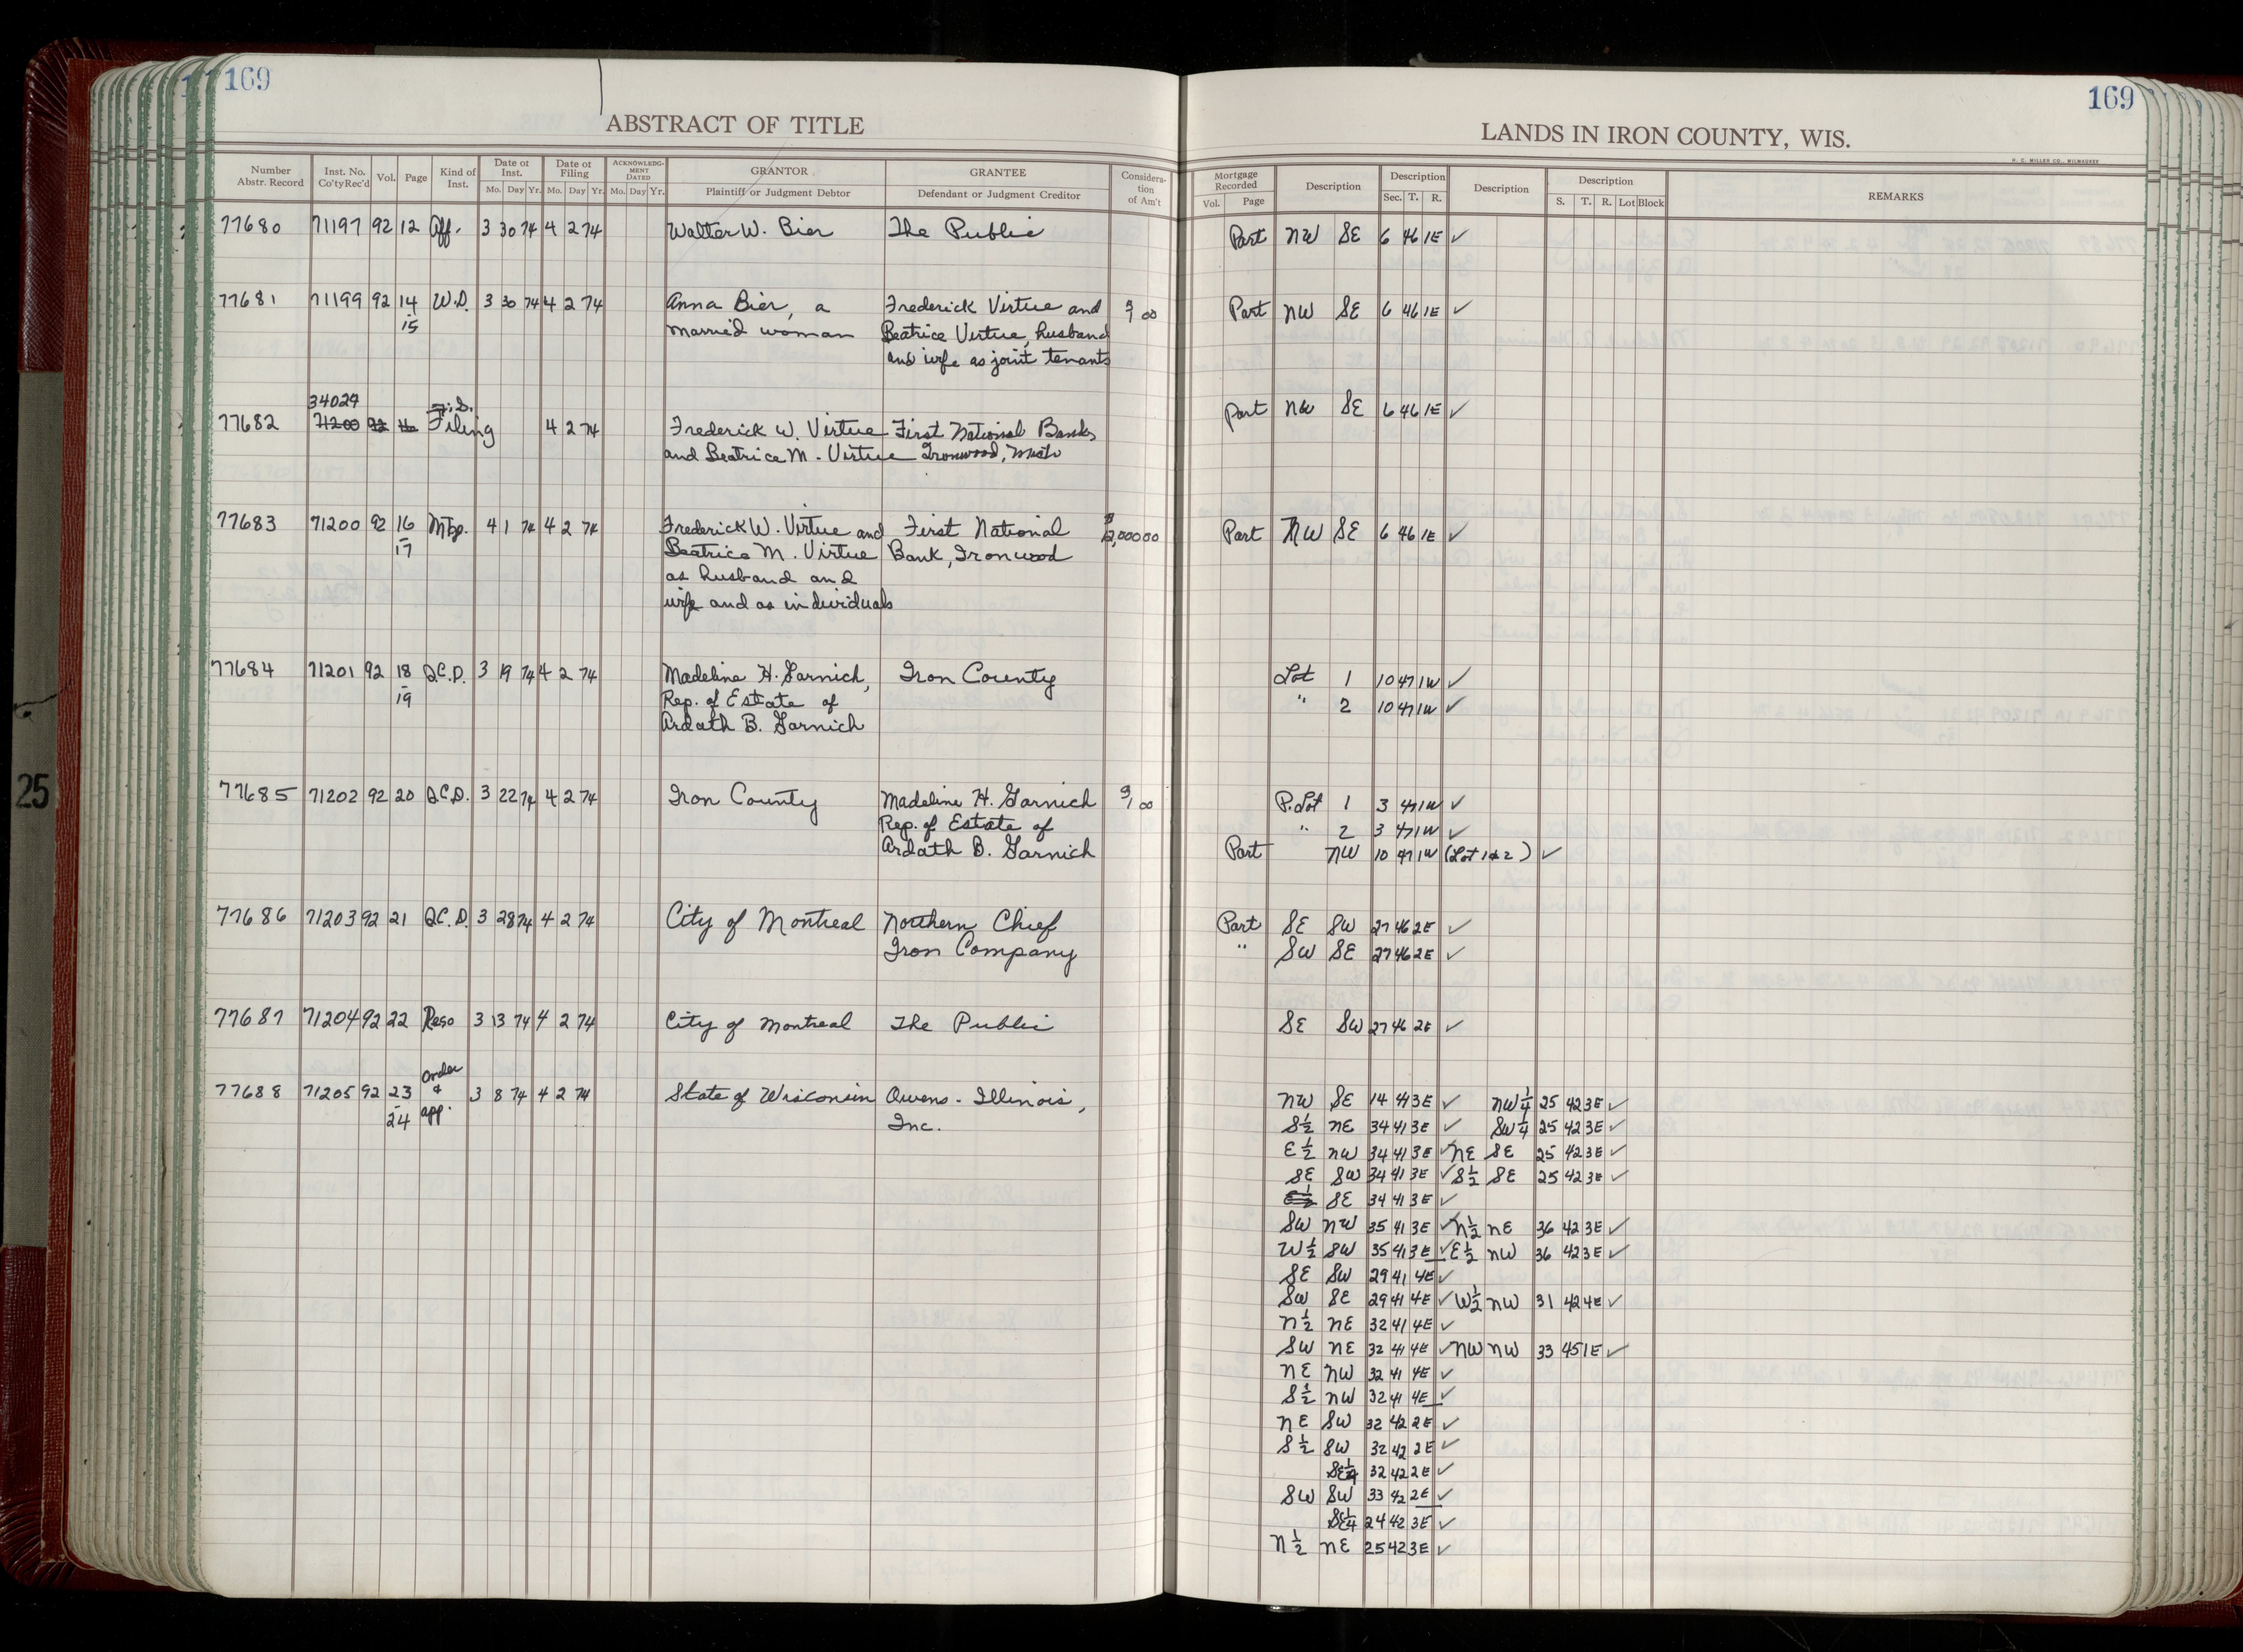 169
169
ABSTRACT OF TITLE
LANDS IN IRON COUNTY, WIS.
H. C. MILLER CO., MILWAUKEE
Number Abstr. Record | Inst. No. Co'ty Rec'd | Vol. | Page | Kind of Inst. | Date of Inst. Mo. Day Yr. | Date of Filing Mo. Day Yr. | ACKNOWLEDGMENT DATED Mo. Day Yr. | GRANTOR Plaintiff or Judgment Debtor | GRANTEE Defendant or Judgment Creditor | Consideration of Am't | Mortgage Recorded Vol. Page | Description | Description Sec. T. R. | Description | Description S. T. R. Lot Block | REMARKS
77680 71197 92 12 Aff. 3 30 74 4 2 74 Walter W. Bier The Public Part NW SE 6 46 1E ✓
77681 71199 92 14 W.D. 3 30 74 4 2 74 Anna Bier, a Frederick Virtue and 00 Part NW SE 6 46 1E ✓
15 married woman Beatrice Virtue, husband
and wife as joint tenants
34029
77682 71200 92 Filing 4 2 74 Frederick W. Virtue First National Bank Part NW SE 6 46 1E ✓
and Beatrice M. Virtue Ironwood, Mich
77683 71200 92 16 Mtg. 4 1 74 4 2 74 Frederick W. Virtue and First National Part NW SE 6 46 1E ✓
17 Beatrice M. Virtue Bank, Ironwood
as husband and
wife and as individuals
77684 71201 92 18 Q.C.D. 3 19 74 4 2 74 Madeline H. Garnich, Iron County Lot 1 10 47 1W ✓
19 Rep. of Estate of " 2 10 47 1W ✓
Ardath B. Garnich
77685 71202 92 20 Q.C.D. 3 22 74 4 2 74 Iron County Madeline H. Garnich 1 00 P. Lot 1 3 47 1W ✓
Rep. of Estate of " 2 3 47 1W ✓
Ardath B. Garnich Part NW 10 47 1W (Lot 1 & 2) ✓
77686 71203 92 21 Q.C.D. 3 28 74 4 2 74 City of Montreal Northern Chief Part SE SW 27 46 2E ✓
Iron Company " SW SE 27 46 2E ✓
77687 71204 92 22 Reso 3 13 74 4 2 74 City of Montreal The Public SE SW 27 46 2E ✓
Order
77688 71205 92 23 & 3 8 74 4 2 74 State of Wisconsin Owens-Illinois, NW SE 14 41 3E ✓ NW¼ 25 42 3E ✓
24 app. Inc. S½ NE 34 41 3E ✓ SW¼ 25 42 3E ✓
E½ NW 34 41 3E ✓ NE SE 25 42 3E ✓
SE SW 34 41 3E ✓ S½ SE 25 42 3E ✓
SE 34 41 3E ✓
SW NW 35 41 3E ✓ N½ NE 36 42 3E ✓
W½ SW 35 41 3E ✓ E½ NW 36 42 3E ✓
SE SW 29 41 4E ✓
SW SE 29 41 4E ✓ W½ NW 31 42 4E ✓
N½ NE 32 41 4E ✓
SW NE 32 41 4E ✓ NW NW 33 45 1E ✓
NE NW 32 41 4E ✓
S½ NW 32 41 4E ✓
NE SW 32 42 2E ✓
S½ SW 32 42 2E ✓
SE¼ 32 42 2E ✓
SW SW 33 42 2E ✓
SE¼ 24 42 3E ✓
N½ NE 25 42 3E ✓
25